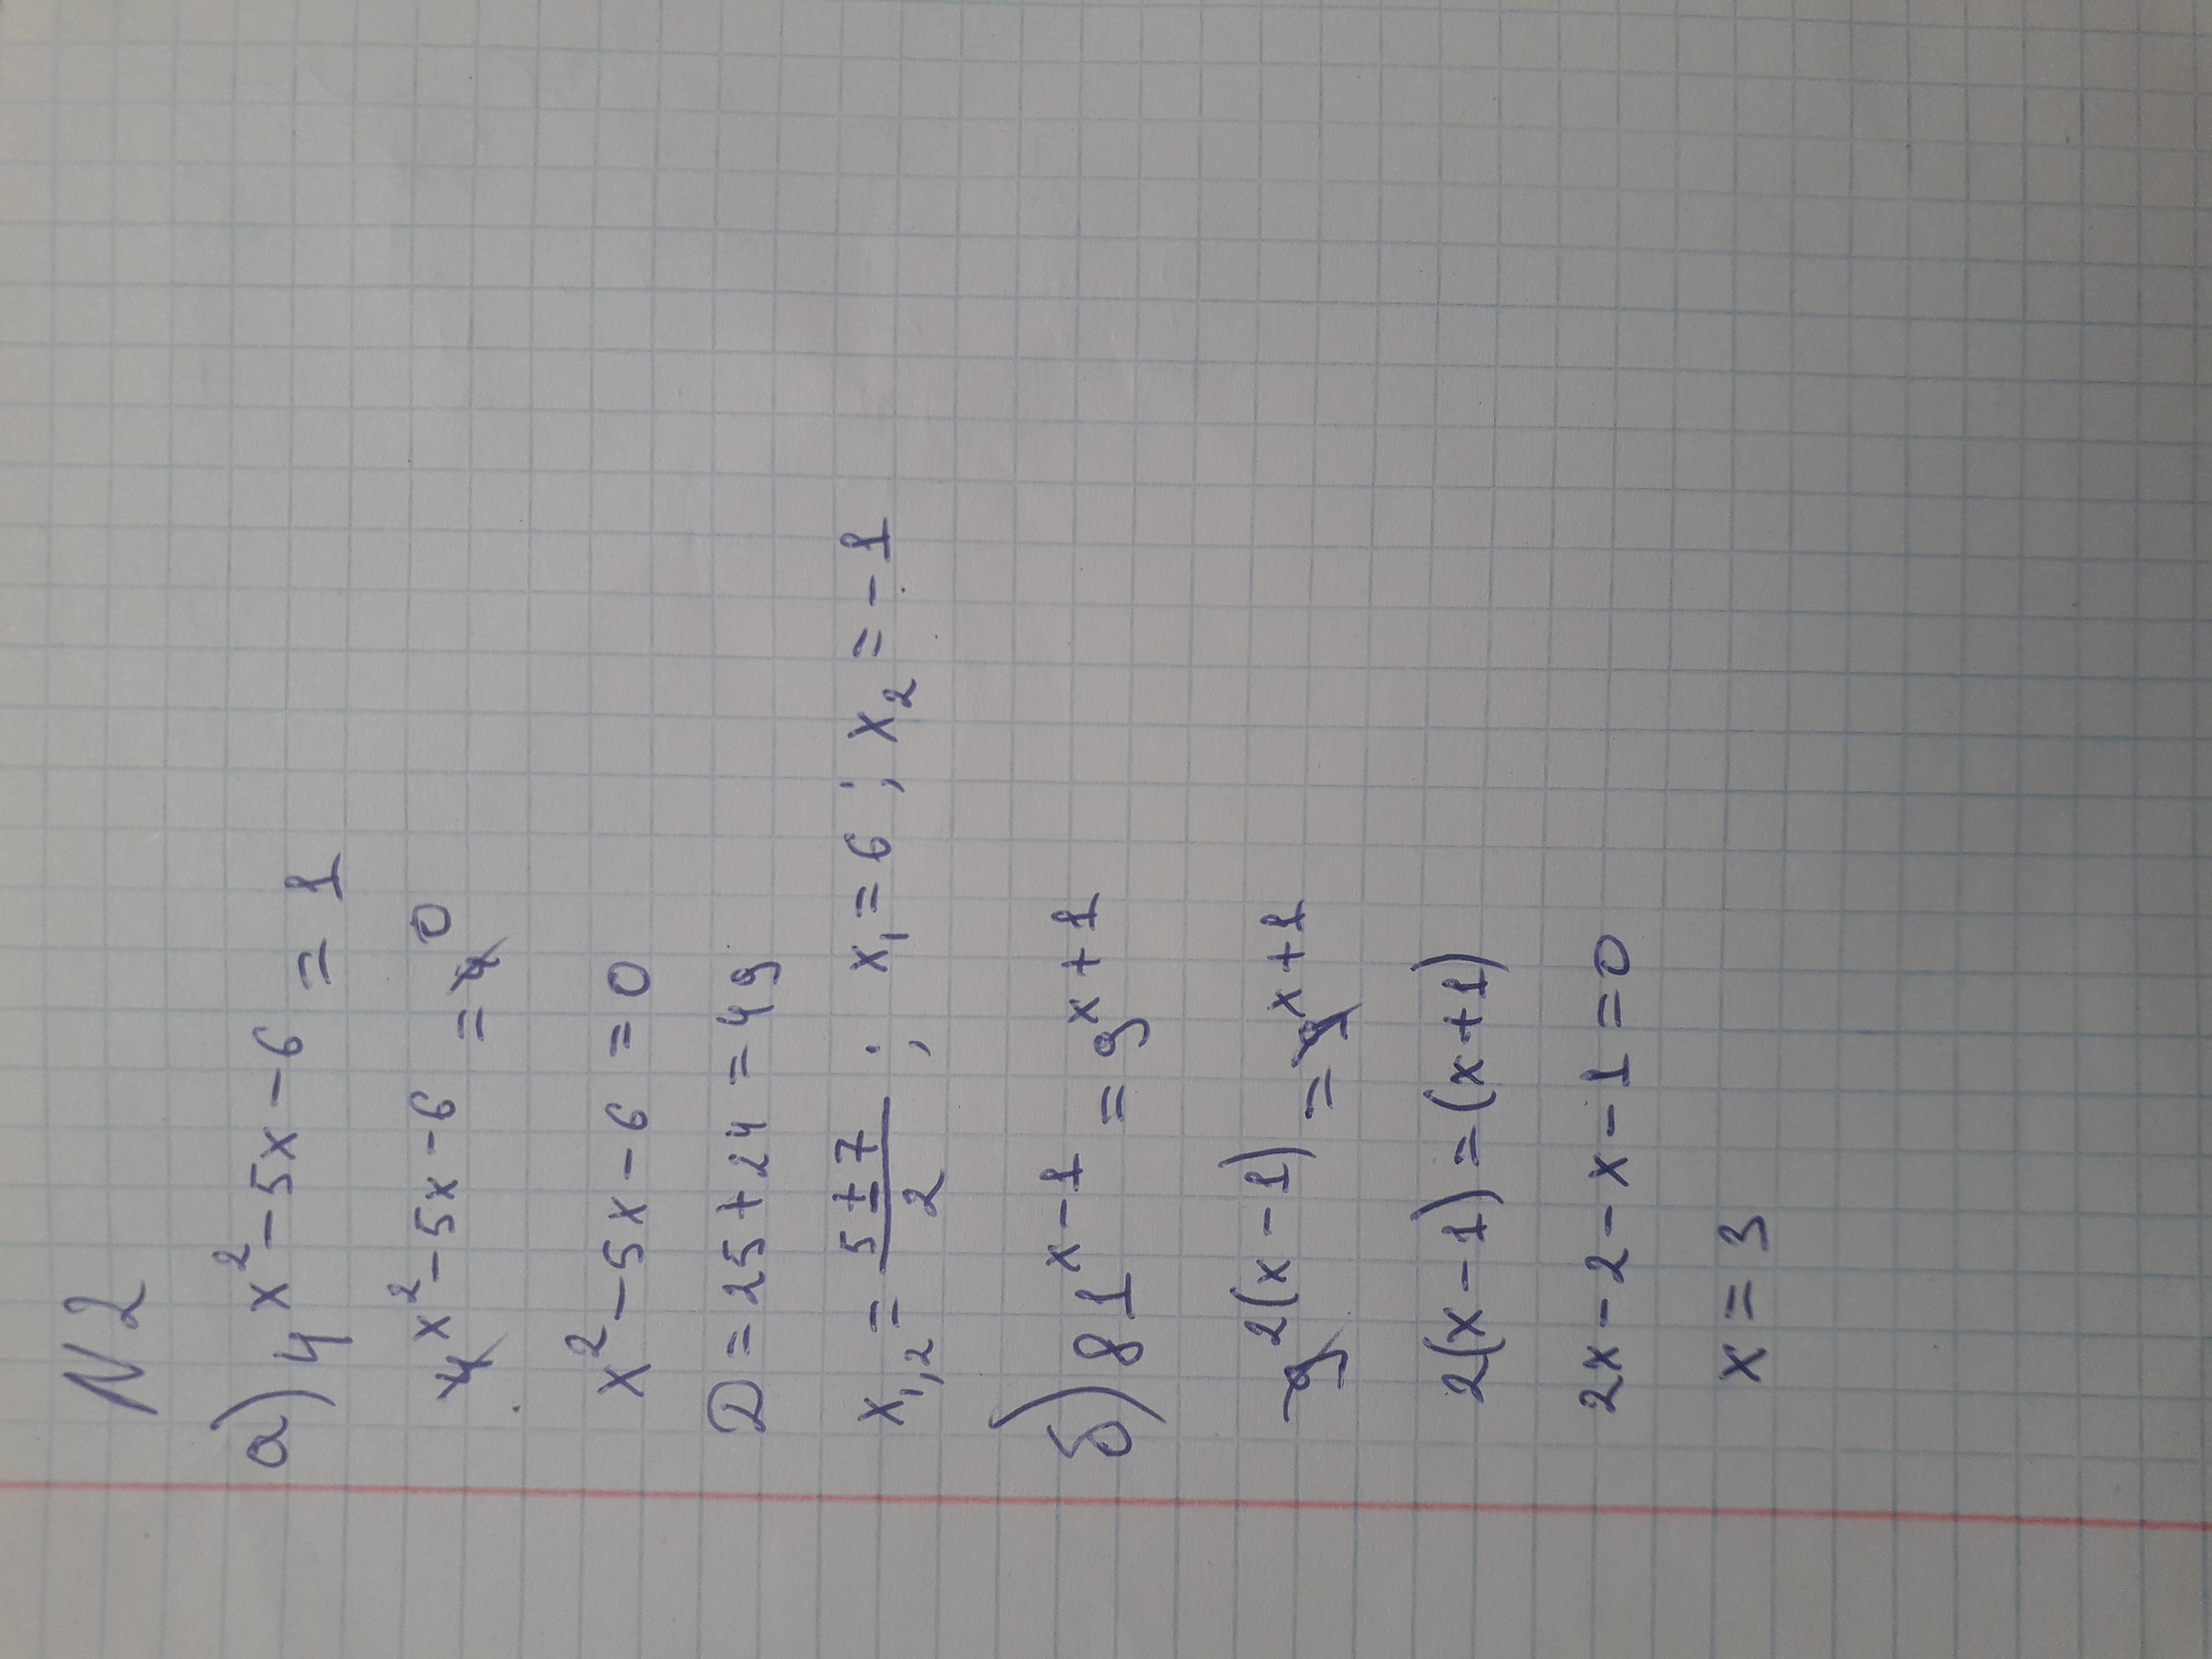 N 2
а) 4^{x^2-5x-6} = 1
4^{x^2-5x-6} = 4^0
x^2-5x-6=0
D=25+24=49
x_{1,2} = \frac{5±7}{2}; x_1=6; x_2=-1
б) 81^{x-1} = 9^{x+1}
9^{2(x-1)} = 9^{x+1}
2(x-1)=(x+1)
2x-2-x-1=0
x=3